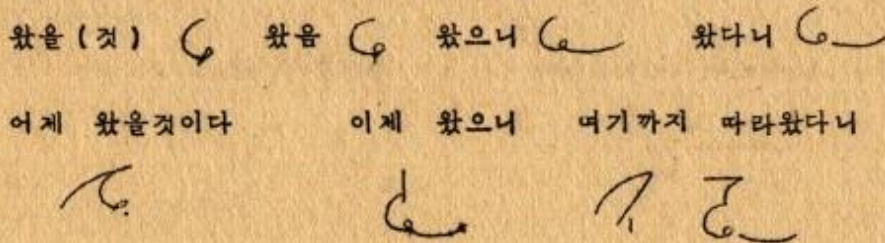 왔을 (것) 왔음 왔으니 왔다니
어제 왔을것이다 이제 왔으니 여기까지 따라왔다니